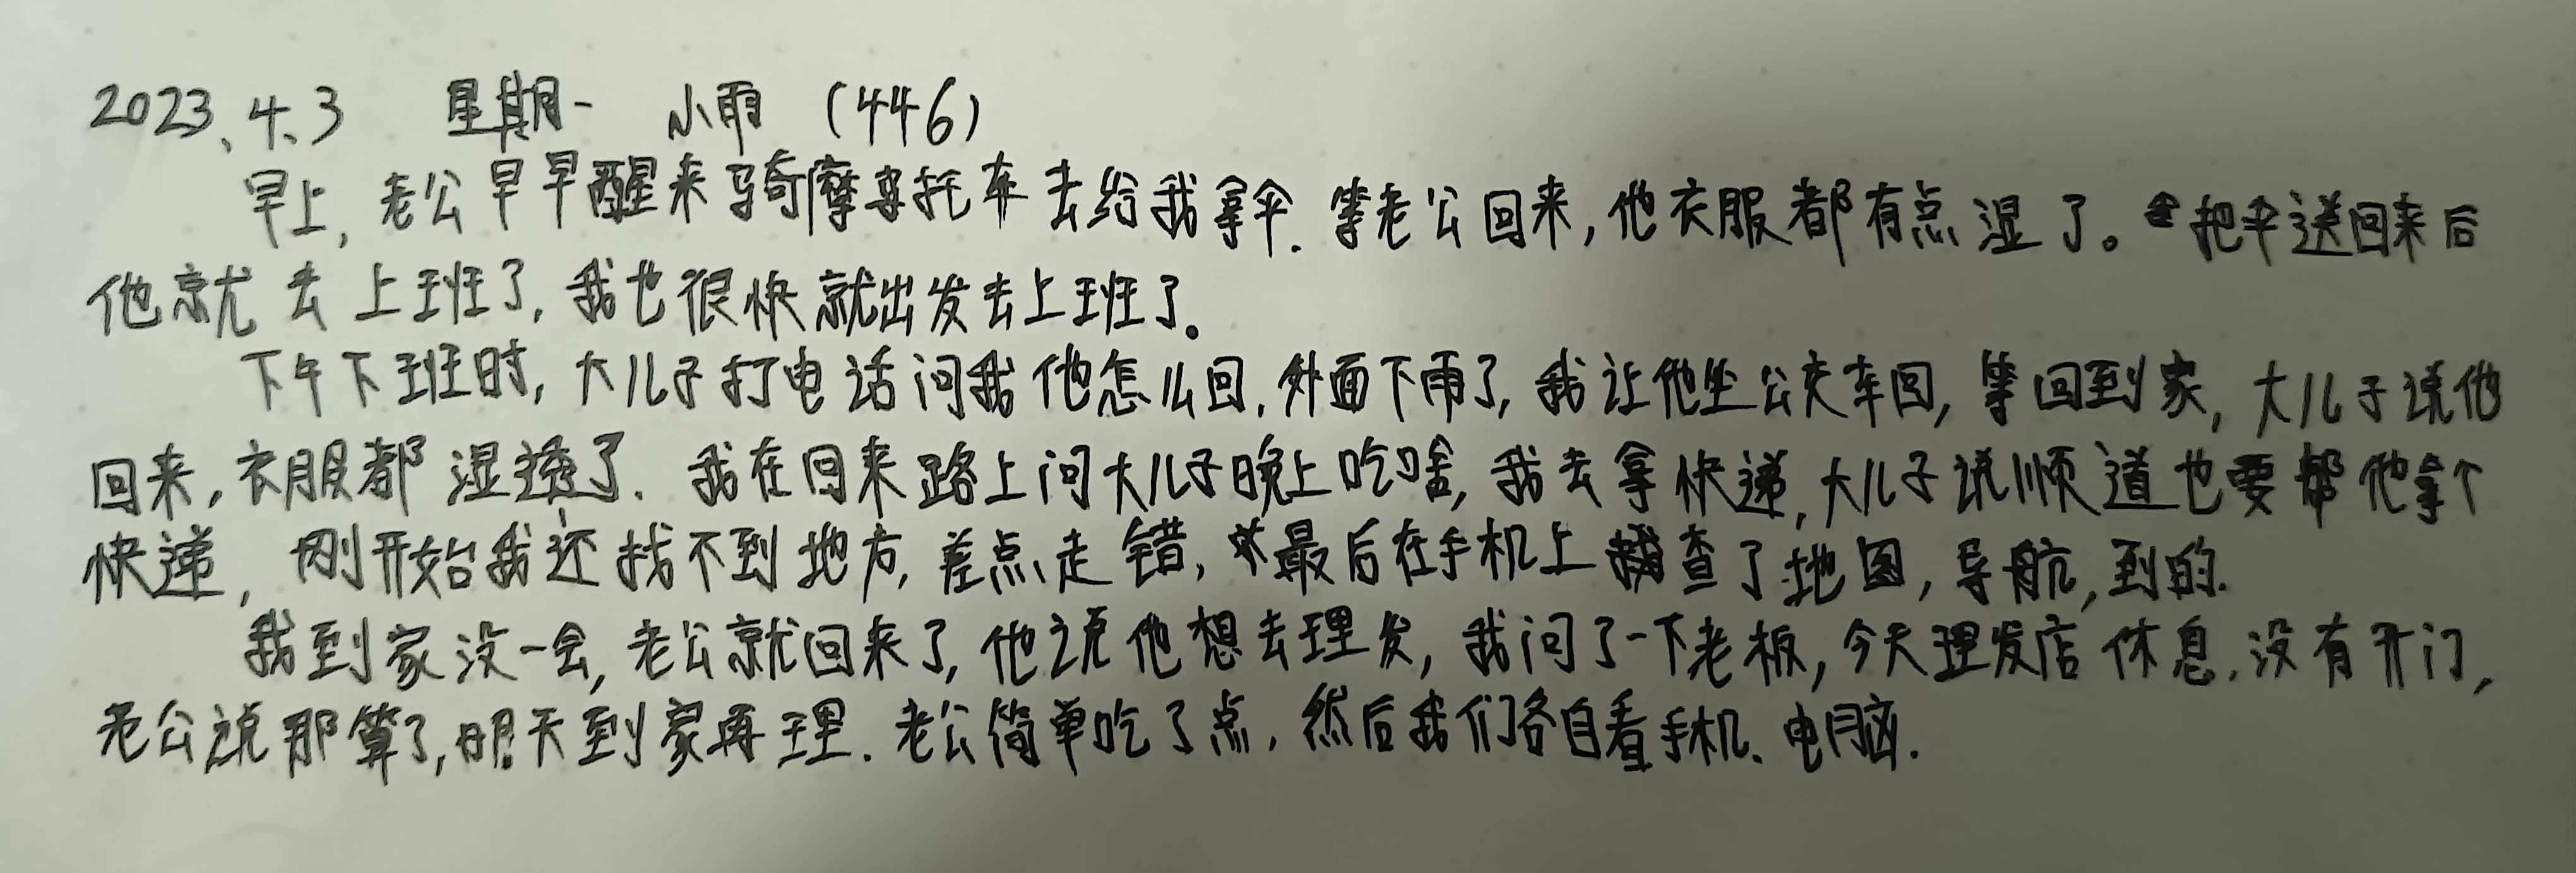 2023.4.3 星期一 小雨 (446)
早上,老公早早醒来骑摩托车去给我拿伞.等老公回来,他衣服都有点湿了。把伞送回来后
他就去上班了,我也很快就出发去上班了。
下午下班时,大儿子打电话问我他怎么回,外面下雨了,我让他坐公交车回,等回到家,大儿子说他
回来,衣服都湿透了.我在回来路上问大儿子晚上吃啥,我去拿快递,大儿子说顺道也要帮他拿个
快递,刚开始我还找不到地方,差点走错,最后在手机上查了地图,导航,到的.
我到家没一会,老公就回来了,他说他想去理发,我问了一下老板,今天理发店休息.没有开门,
老公说那算了,明天到家再理.老公简单吃了点,然后我们各自看手机、电脑.